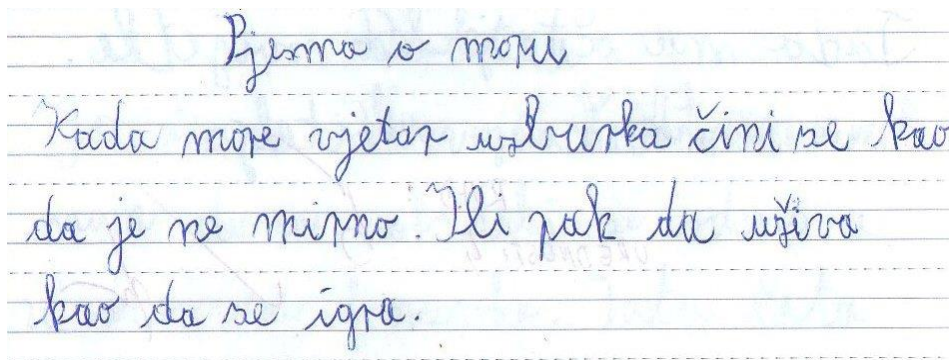 Pjesma o moru
Kada more vjetar uzburka čini se kao
da je ne mirno. Ili pak da uživa
kao da se igra.